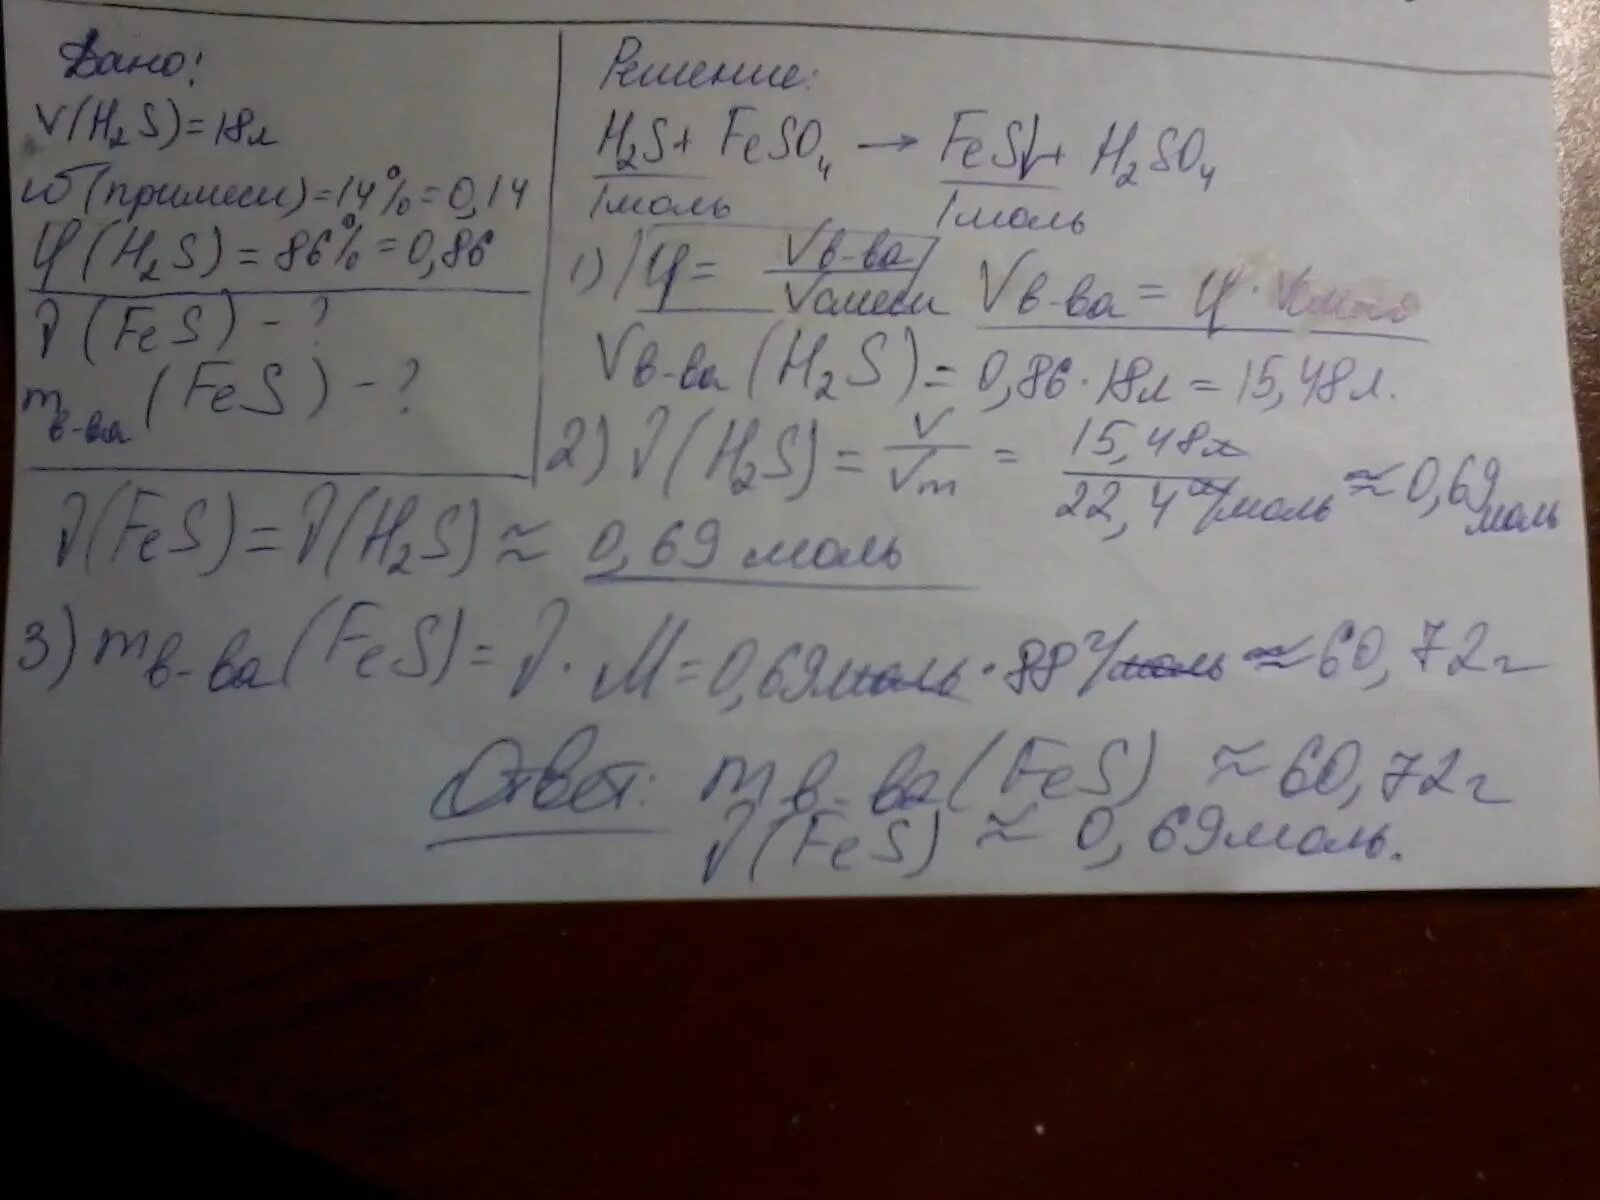 Дано:
V(H₂S) = 18л
ω(примеси) = 14% = 0,14
φ(H₂S) = 86% = 0,86
ν(FeS) - ?
m в-ва (FeS) - ?
Решение:
H₂S + FeSO₄ → FeS↓ + H₂SO₄
1моль 1моль
1) φ = Vв-ва / Vсмеси Vв-ва = φ · Vсмеси
Vв-ва (H₂S) = 0,86 · 18л = 15,48л.
2) ν(H₂S) = V / Vm = 15,48л / 22,4 л/моль ≈ 0,69 моль
ν(FeS) = ν(H₂S) ≈ 0,69 моль
3) m в-ва (FeS) = ν · M = 0,69моль · 88 г/моль ≈ 60,72г
Ответ: m в-ва (FeS) ≈ 60,72г
ν(FeS) ≈ 0,69моль.